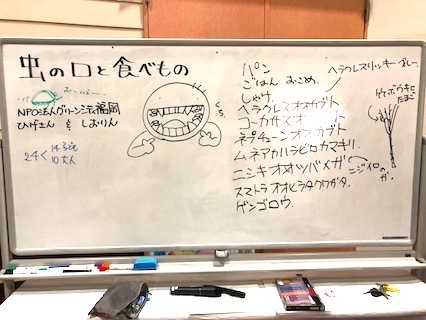 虫の口と食べもの
NPO法人グリーンシティ福岡
ひげさん & しおりん
24<
14子ども
10大人
パン
ごはん おこめ。
しゃけ。
ヘラクレスオオカブト
ヘラクレスリッキーブルー。
コーカサスオオカブト
ネプチューンオオカブト
ムネアカハラビロカマキリ。
ニシキオオツバメガ。
ニジイロのガ。
スマトラオオヒラタクワガタ。
ゲンゴロウ。
竹ボウキに
たまご